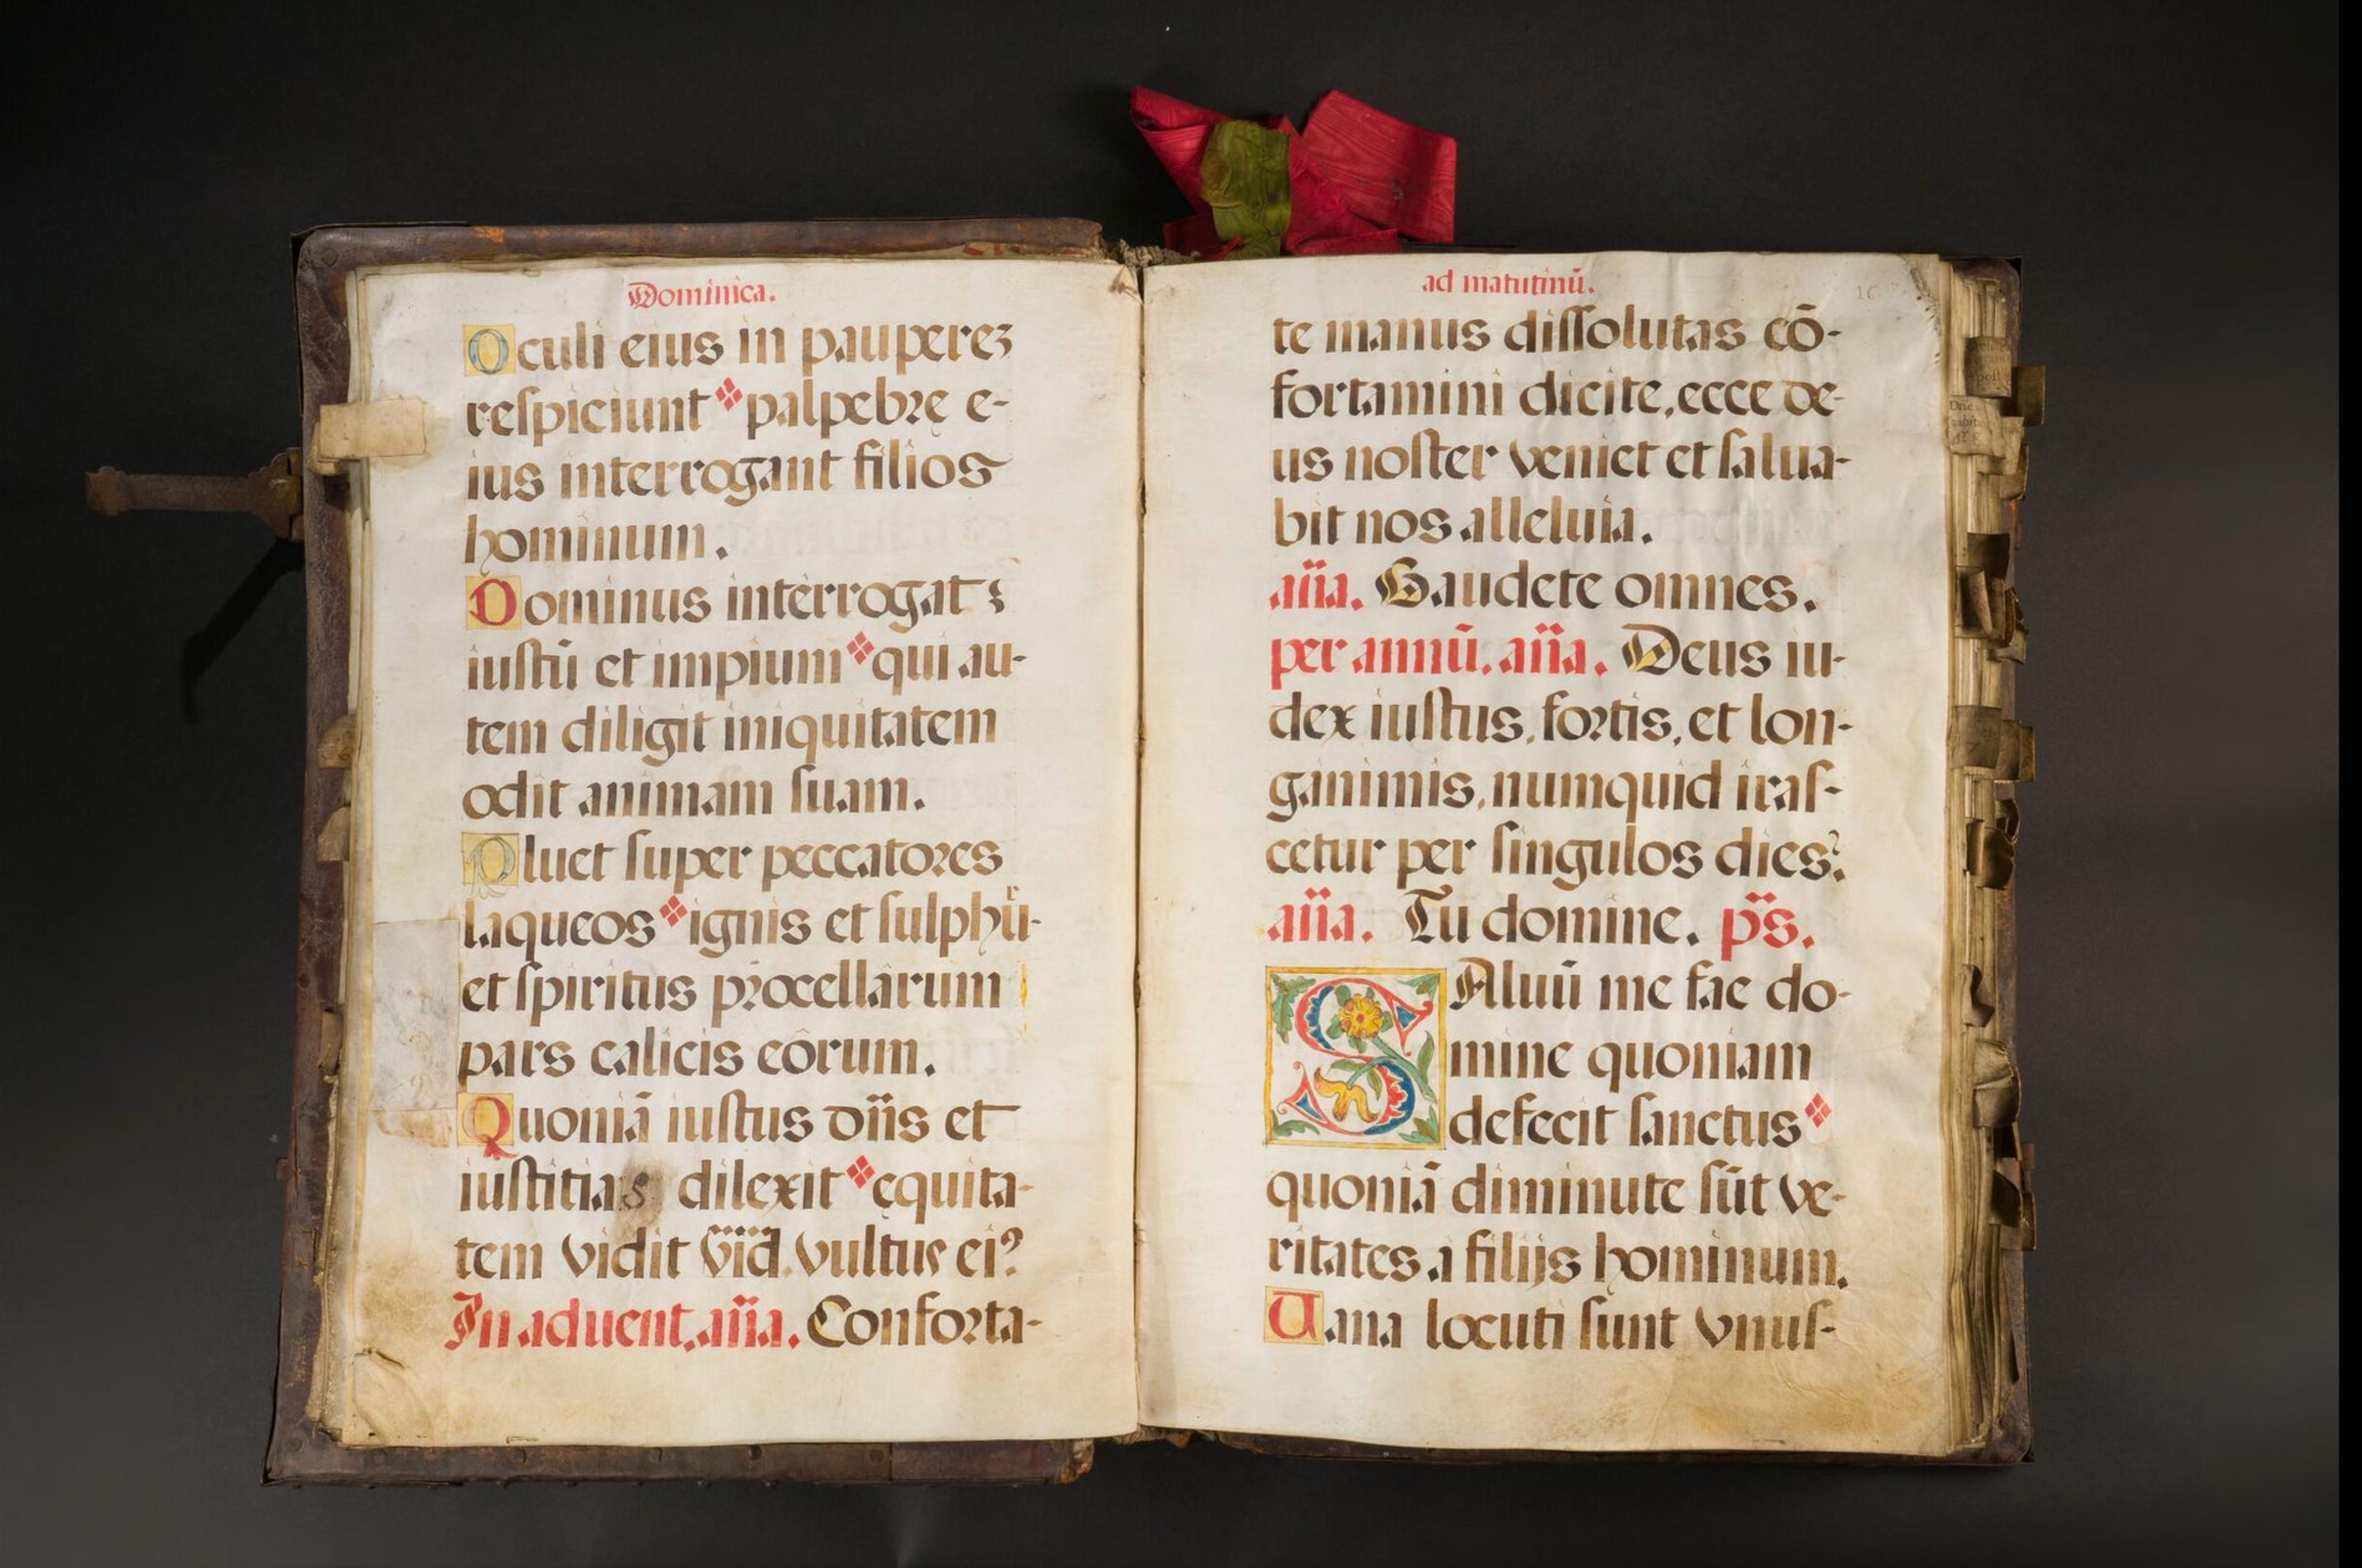 Dominica.
Oculi eius in pauperez
reſpiciunt palpebrę e-
ius interrogant filios
hominum.
Dominus interrogat
iuſtū et impium qui au-
tem diligit iniquitatem
odit animam ſuam.
Pluet ſuper peccatores
laqueos ignis et ſulphur
et ſpiritus procellarum
pars calicis eorum.
Quoniā iuſtus dñs et
iuſtitias dilexit ęquita-
tem vidit vultus ei9
In aduent. aña. Conforta-
ad matutinū.
16
te manus diſſolutas cō-
fortamini dicite, ecce de-
us noſter veniet et ſalua-
bit nos alleluia.
aña. Gaudete omnes.
per annū. aña. Deus iu-
dex iuſtus, fortis, et lon-
ganimis, numquid iraſ-
cetur per ſingulos dies?
aña. Tu domine. ps.
SAluū me fac do-
mine quoniam
defecit ſanctus
quoniā diminute ſūt ve-
ritates a filijs hominum.
Uana locuti ſunt vnuſ-